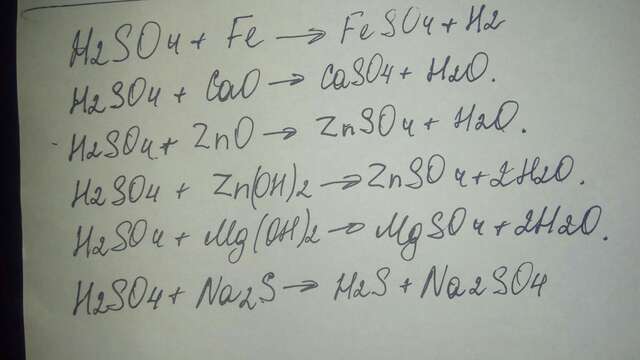 H2SO4 + Fe → FeSO4 + H2
H2SO4 + CaO → CaSO4 + H2O.
H2SO4 + ZnO → ZnSO4 + H2O.
H2SO4 + Zn(OH)2 → ZnSO4 + 2H2O.
H2SO4 + Mg(OH)2 → MgSO4 + 2H2O.
H2SO4 + Na2S → H2S + Na2SO4